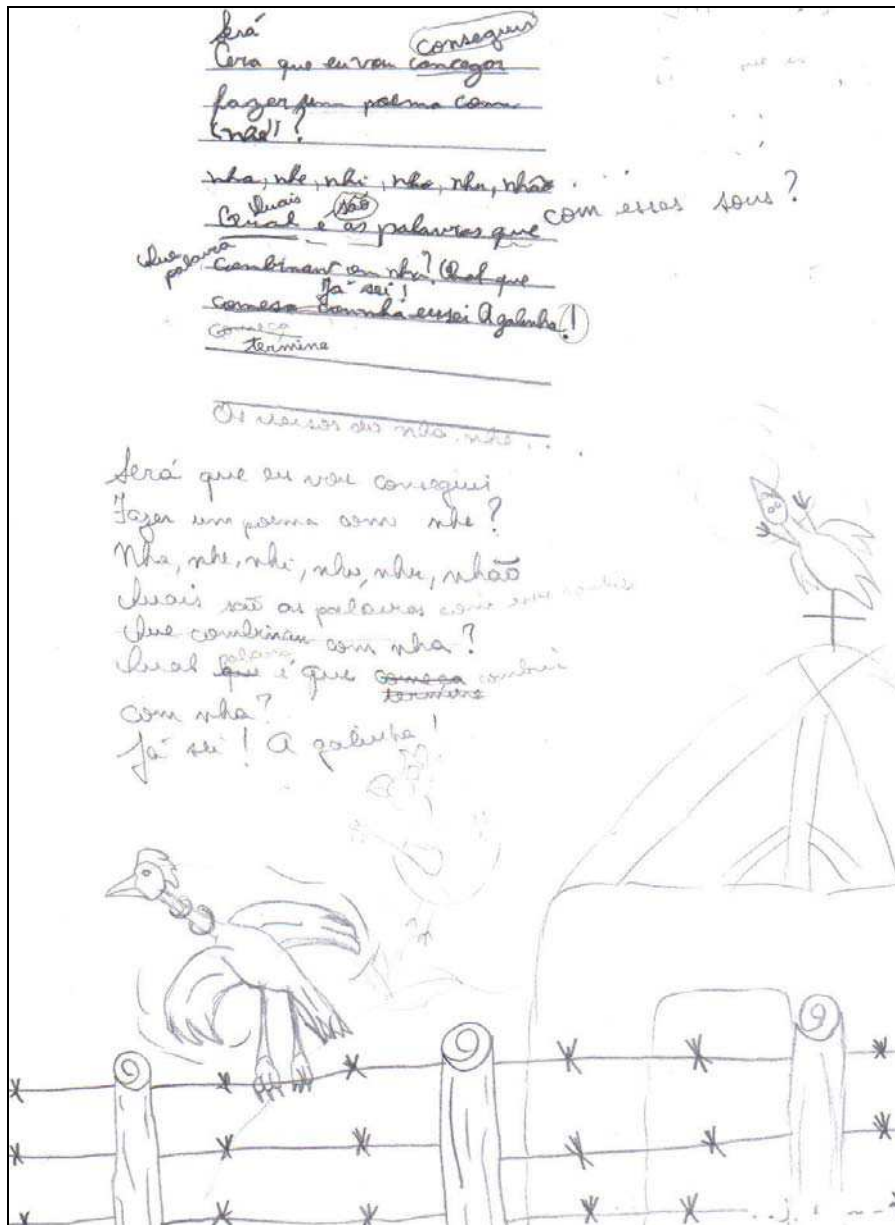 Será
conseguir
Cera que eu vou concegor
fazer um poema com
"nhe"?
nha, nhe, nhi, nho, nhu, nhão
Quais são
Ceral é as palavras que com esses sons?
Que palavra
combinam em nha? Qual que
Já sei!
comesa com nha eu sei A galinha!
começa
termine
Os versos do nha, nhe...
Será que eu vou consegui
Fazer um poema com nhe?
Nha, nhe, nhi, nho, nhu, nhão
Quais são as palavras
Que combinam com nha?
palavra
Qual que é que começa combine
termine
com nha?
Já sei! A galinha!